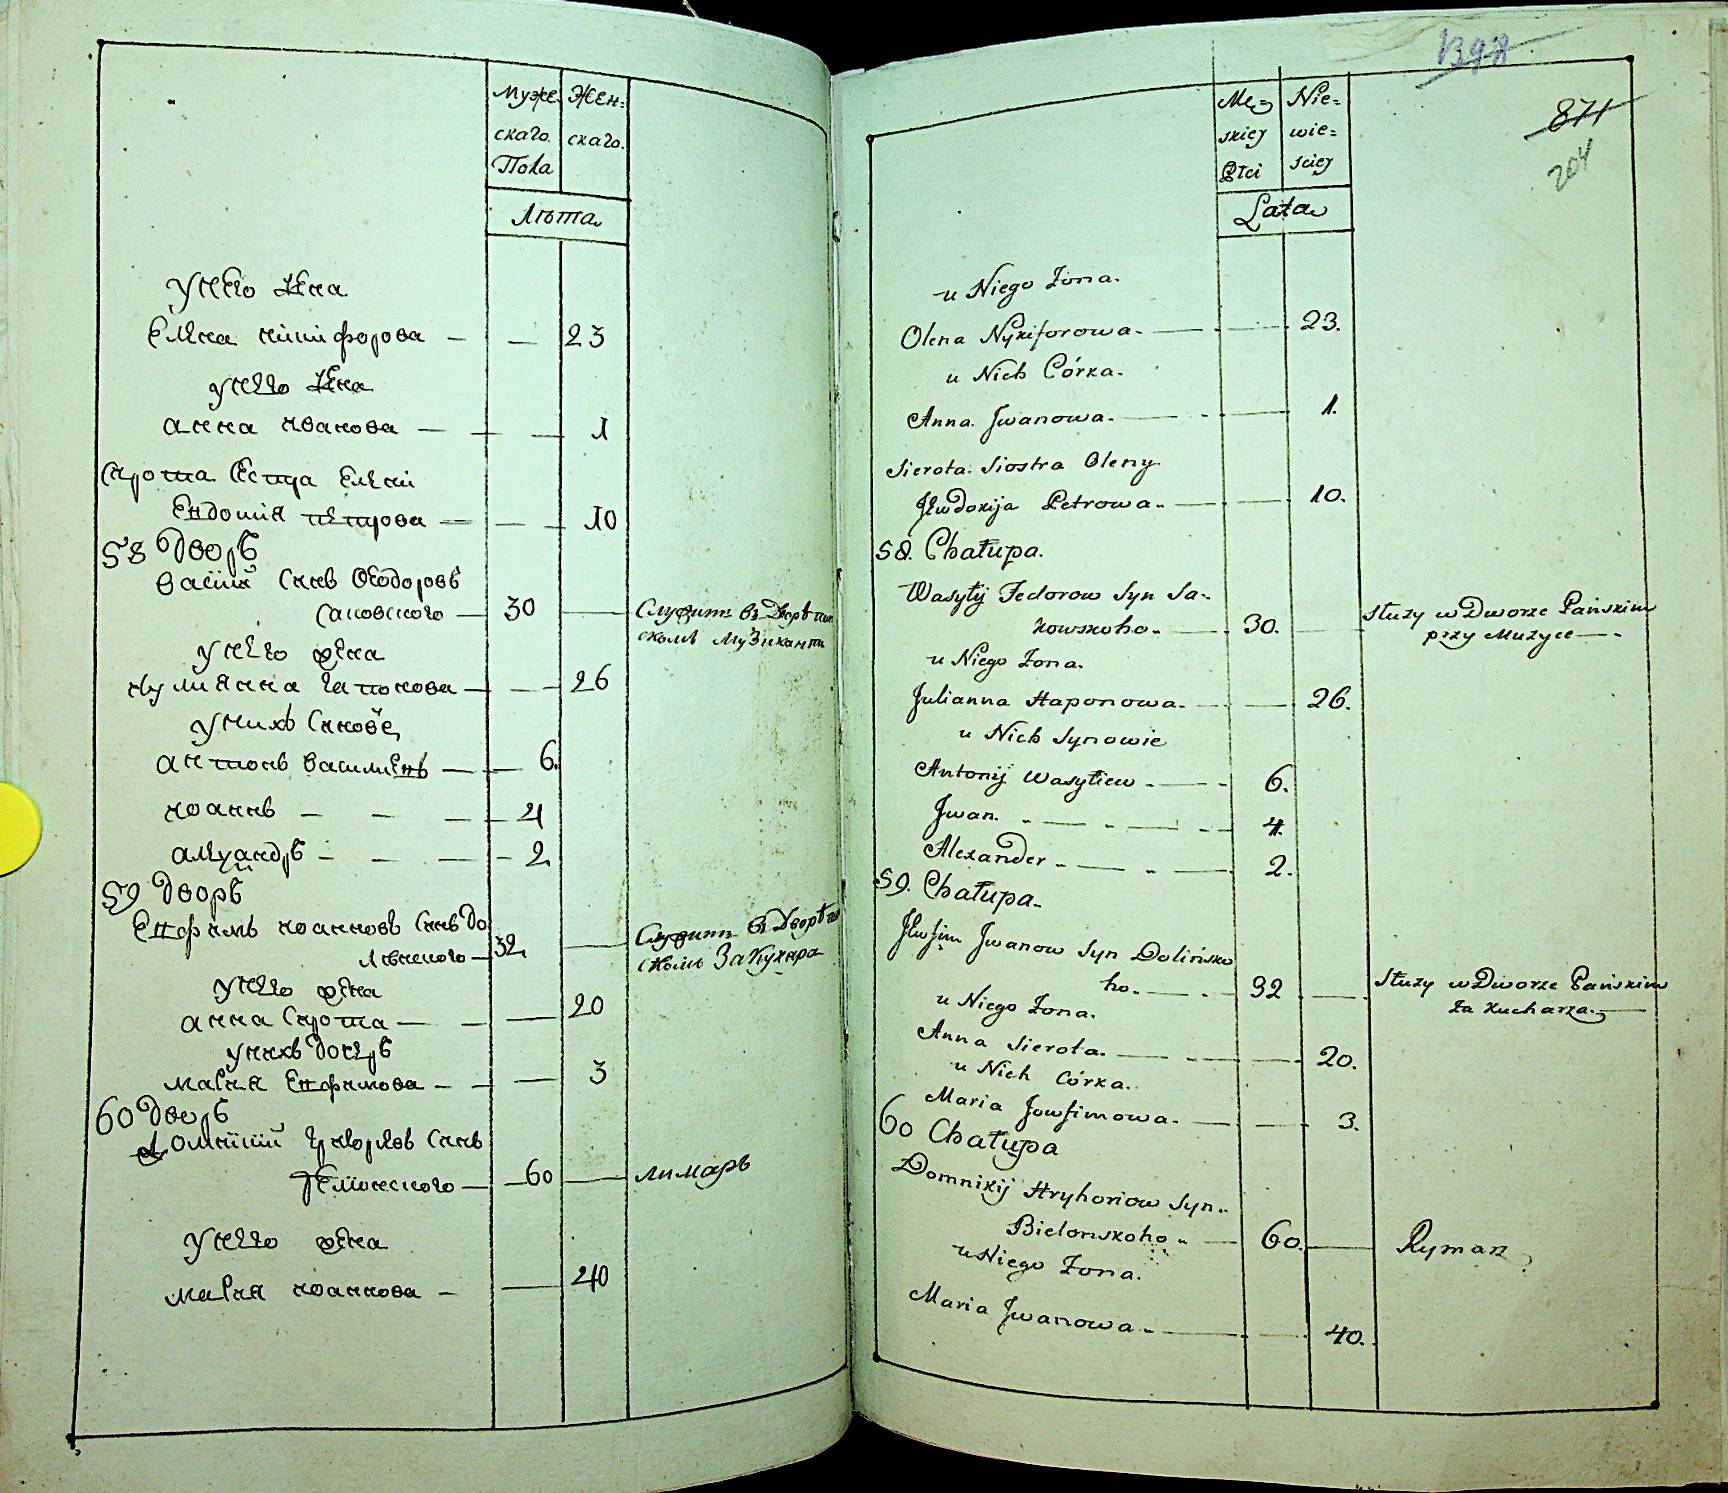 Муже Жен=
скаго. скаго.
Пола
Лѣта
У него жена
Елена Никифорова — — 23
у него жена
анна иванова — — — 1
Сирота Сестра Елени
Евдокия петрова — — — 10
58 дворъ
Василий Синъ Феодоровъ
Саковского — 30 — Служитъ въ Дворѣ пан
скомъ Музикантъ
У него жена
иулиянна гапонова — — 26
У нихъ Синове
антонъ василиевъ — — 6.
иоаннъ — — — — 4
александръ — — — — 2
59 дворъ
Евфимъ иоанновъ Синъ До
линского — 32 — Служитъ въ Дворѣ пан
скомъ За Кухара
У него жена
анна Сирота — — — 20
у нихъ дочеръ
мария Евфимова — — — 3
60 дворъ
домникий григориевъ Синъ
— 60 — лимаръ
У него жена
мария иоаннова — — 40
1398
871
204
Mę= Nie=
skiej wie=
Płci sciej
Lata
u Niego Żona.
Olena Nykiforowa. — — 23.
u Nich Córka.
Anna. Jwanowa. — — 1.
Sierota. Siostra Oleny
Jewdokija Petrowa. — — 10.
58. Chałupa.
Wasylij Fedorow Syn Sa-
kowskoho. — 30. — Służy w Dworze Pańskim
przy Muzyce —
u Niego Żona.
Julianna Haponowa. — — 26.
u Nich Synowie
Antonij Wasyliew — — 6.
Jwan. — — — 4.
Alexander — — — 2.
59. Chałupa.
Jewfim Jwanow Syn Dolińsko
ho. — 32 — Służy w Dworze Pańskim
za Kucharza. —
u Niego Żona.
Anna Sierota. — — — 20.
u Nich Córka.
Maria Jewfimowa. — — 3.
60 Chałupa
Domnikij Hryhoriow Syn
Bielonskoho — 60. — Rymarz
u Niego Żona.
Maria Jwanowa — — 40.